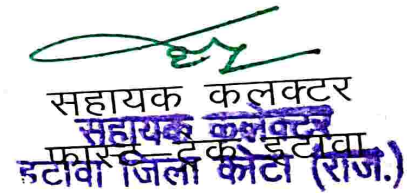 सहायक कलक्टर
सहायक कलेक्टर
फास्ट ट्रेक इटावा
इटावा जिला कोटा (राज.)